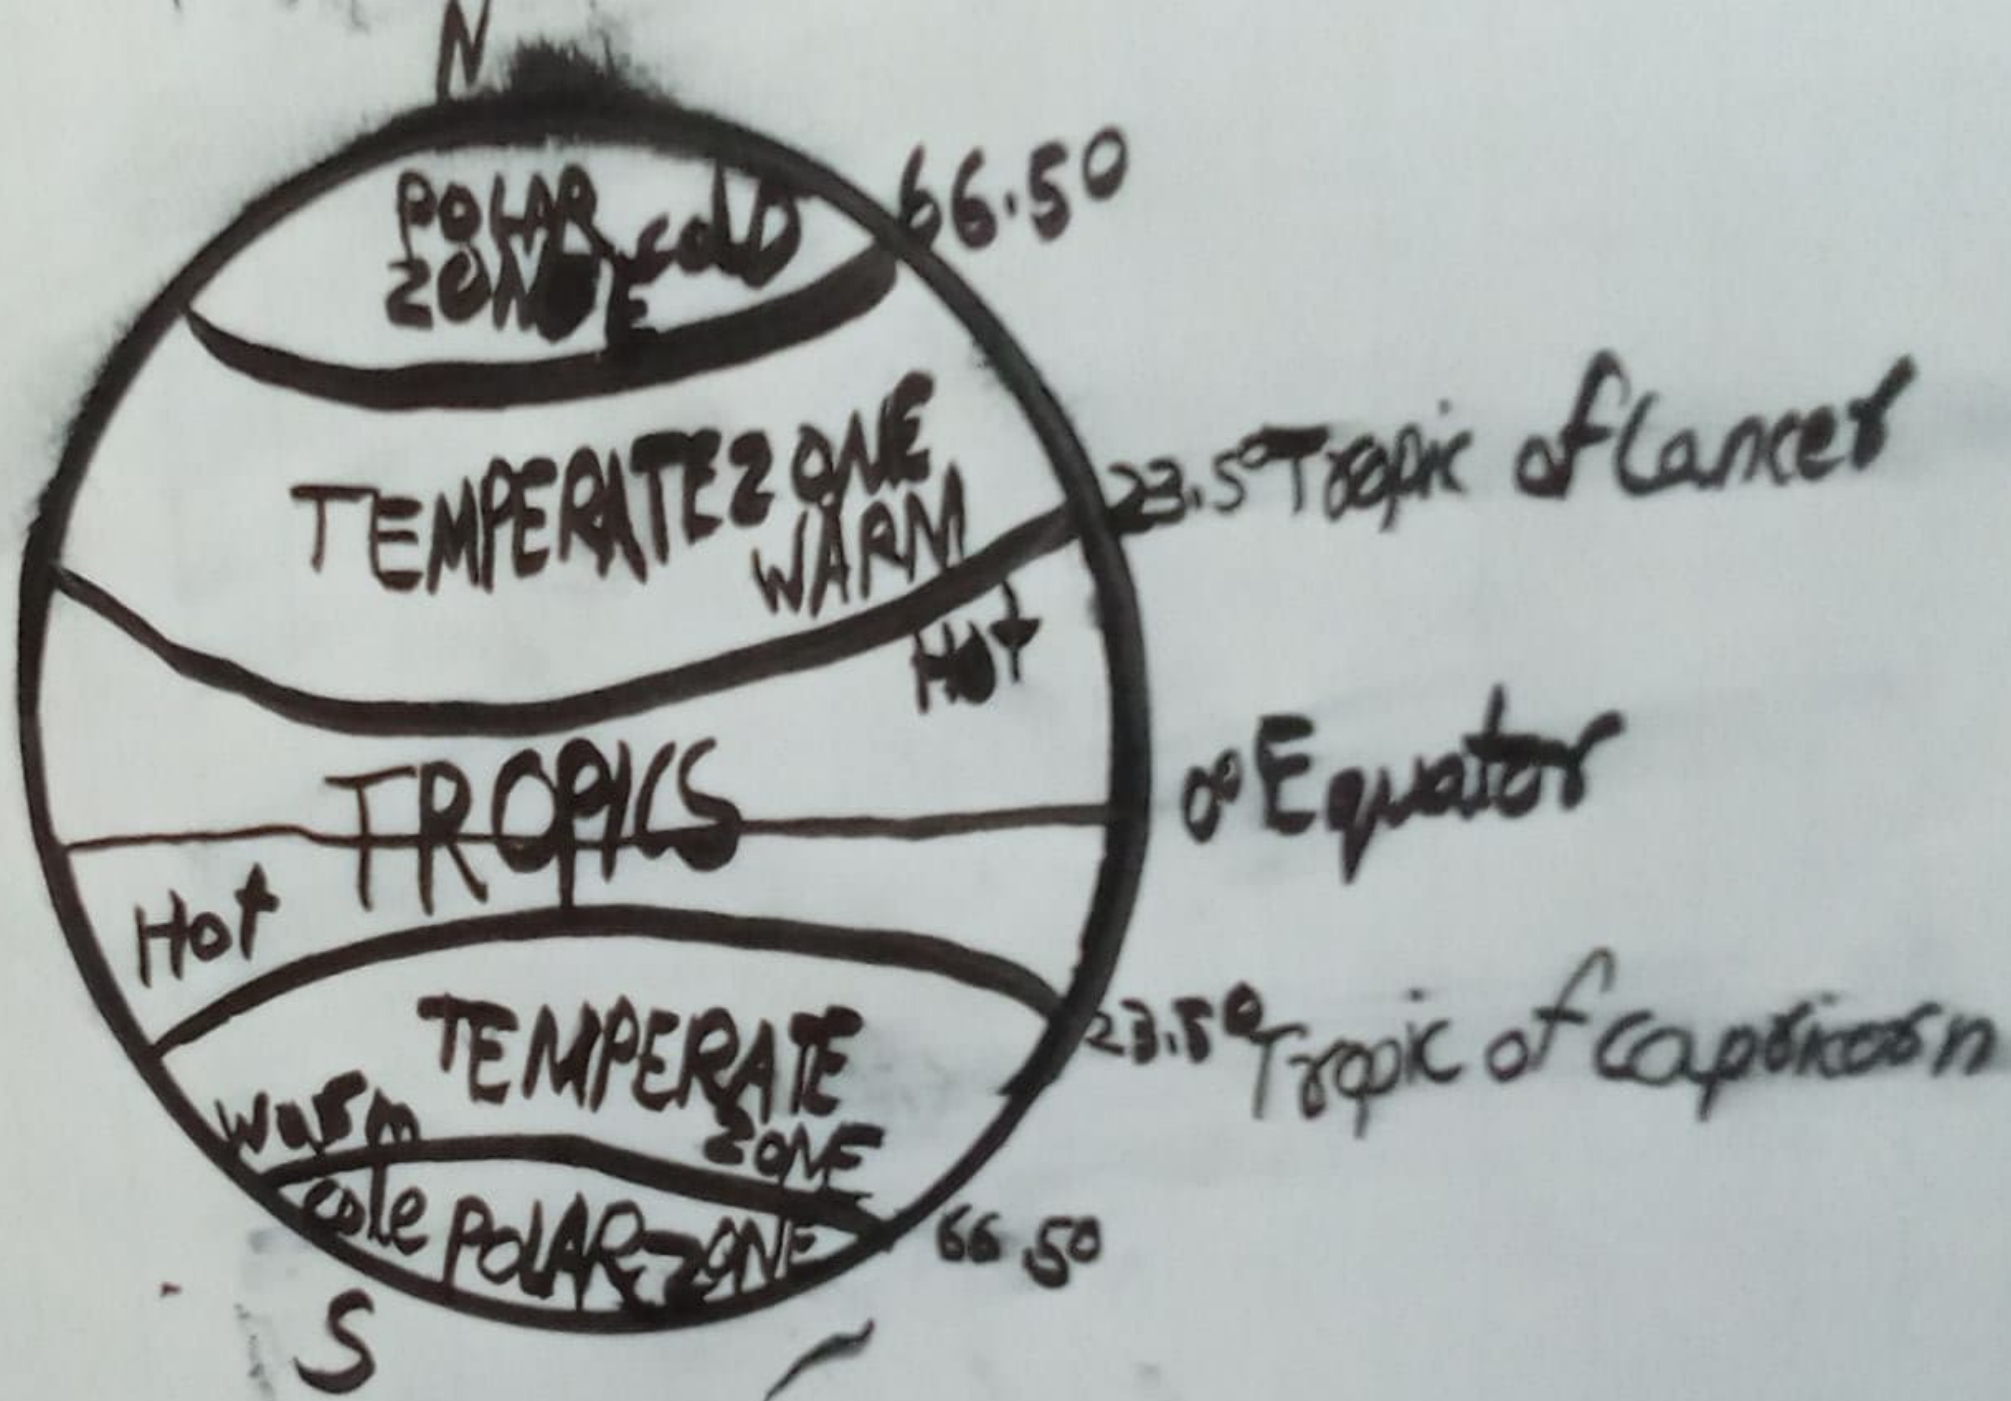 N
POLAR
ZONE
colD
66.5°
TEMPERATE ZONE
WARM
23.5° Tropic of Cancer
Hot
TROPICS
0° Equator
Hot
TEMPERATE
ZONE
23.5° Tropic of capricorn
warm
cole POLAR ZONE
66.5°
S